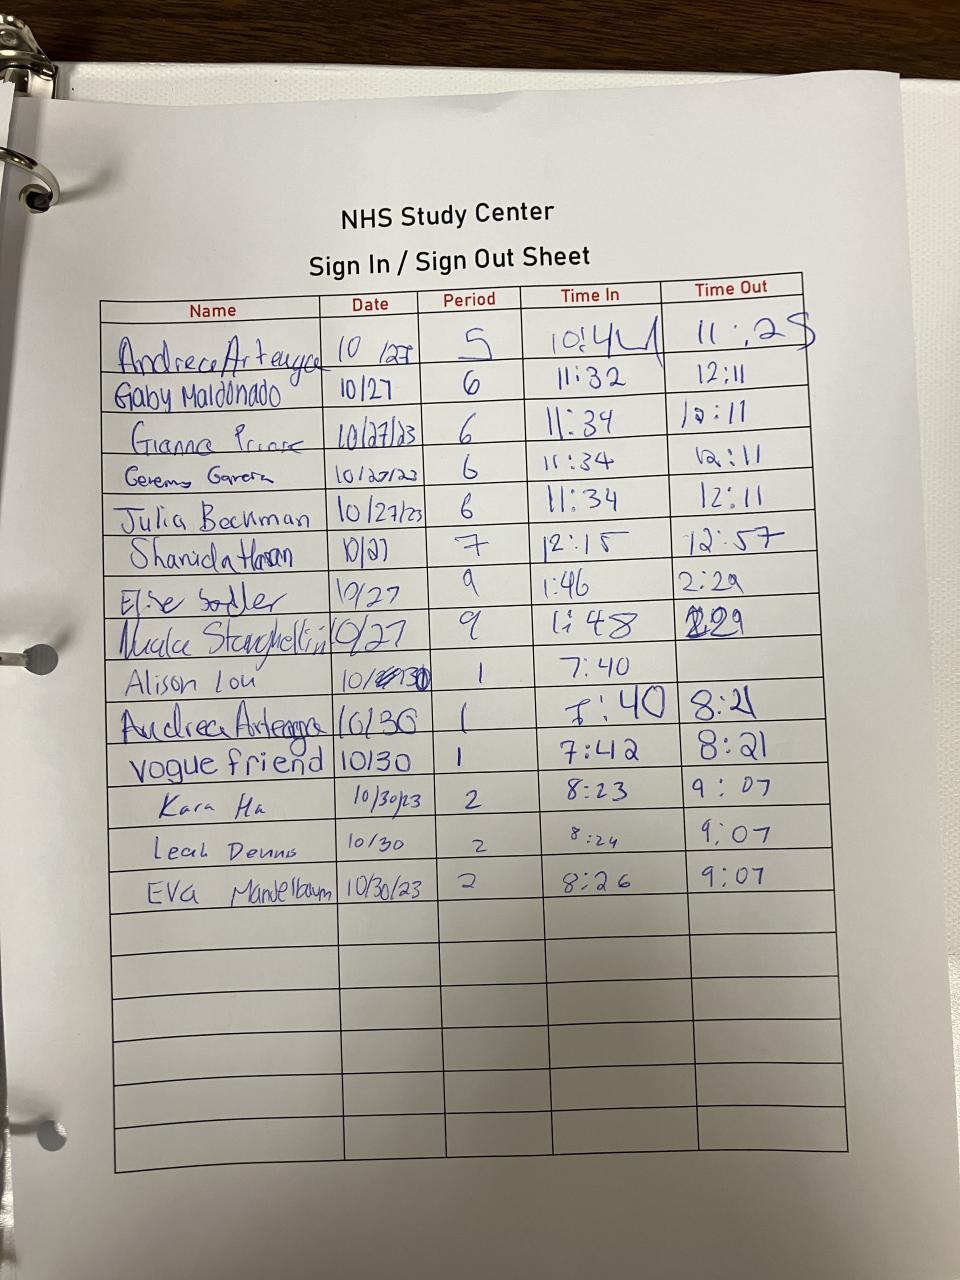 NHS Study Center
Sign In / Sign Out Sheet
Name Date Period Time In Time Out
Andrea Arteaga 10/27 5 10:44 11:25
Gaby Maldonado 10/27 6 11:32 12:11
Gianna 10/27/23 6 11:34 12:11
Garcia 10/27/23 6 11:34 12:11
Julia Beckman 10/27/23 6 11:34 12:11
Shanida Hasan 10/27 7 12:15 12:57
Elise Sadler 10/27 9 1:46 2:29
10/27 9 1:48 2:29
Alison Lou 10/30 1 7:40
Andrea Arteaga 10/30 1 7:40 8:21
vogue friend 10/30 1 7:42 8:21
Kara Ha 10/30/23 2 8:23 9:07
Leah Dennis 10/30 2 8:24 9:07
EVA Mandelbaum 10/30/23 2 8:26 9:07